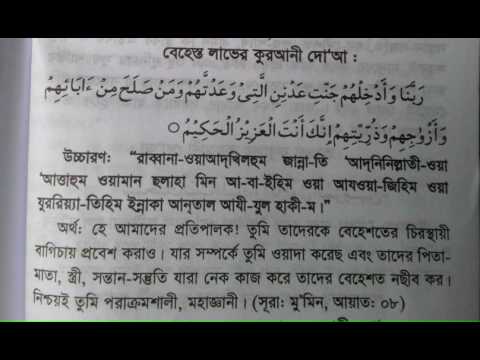 বেহেস্ত লাভের কুরআনী দো'আ :
رَبَّنَا وَأَدْخِلْهُمْ جَنّٰتِ عَدْنِنِ الَّتِيْ وَعَدْتَّهُمْ وَمَنْ صَلَحَ مِنْ ءَابَائِهِمْ
وَأَزْوٰجِهِمْ وَذُرِّيّٰتِهِمْ إِنَّكَ أَنْتَ الْعَزِيْزُ الْحَكِيْمُ ○
উচ্চারণ: “রাব্বানা-ওয়াআদ্‌খিলহুম জান্না-তি 'আদ্‌নিনিল্লাতী-ওয়া
'আত্তাহুম ওয়ামান ছলাহা মিন আ-বা-ইহিম ওয়া আযওয়া-জিহিম ওয়া
যুররিয়্যা-তিহিম ইন্নাকা আন্‌তাল আযী-যুল হাকী-ম।”
অর্থ: হে আমাদের প্রতিপালক! তুমি তাদেরকে বেহেশতের চিরস্থায়ী
বাগিচায় প্রবেশ করাও। যার সম্পর্কে তুমি ওয়াদা করেছ এবং তাদের পিতা-
মাতা, স্ত্রী, সন্তান-সন্ততি যারা নেক কাজ করে তাদের বেহেশত নছীব কর।
নিশ্চয়ই তুমি পরাক্রমশালী, মহাজ্ঞানী। (সূরা: মু'মিন, আয়াত: ০৮)